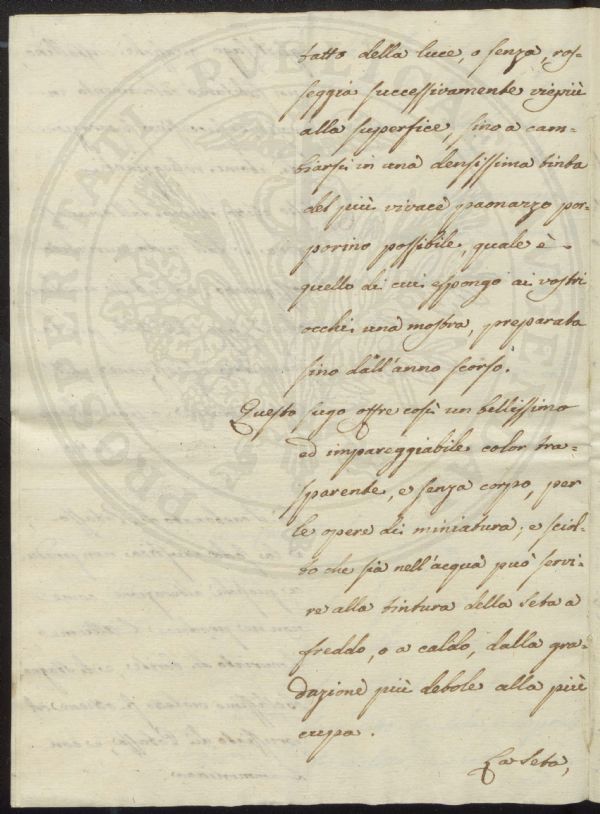 tatto della luce, o senza, ros-
seggia successivamente viepiù
alla superfice, sino a cam-
biarsi in una densissima tinta
del più vivace paonazzo por-
porino possibile, quale è
quello di cui espongo ai vostri
occhi una mostra, preparata
sino dall'anno scorso.
Questo sugo offre così un bellissimo
ed impareggiabile color tra-
sparente, e senza corpo, per
le opere di miniatura; e sciol-
to che sia nell'acqua può servi-
re alla tintura della seta a
freddo, o a caldo, dalla gra-
dazione più debole alla più
cupa.
La seta,
PROSPERITATI PUBLICAE